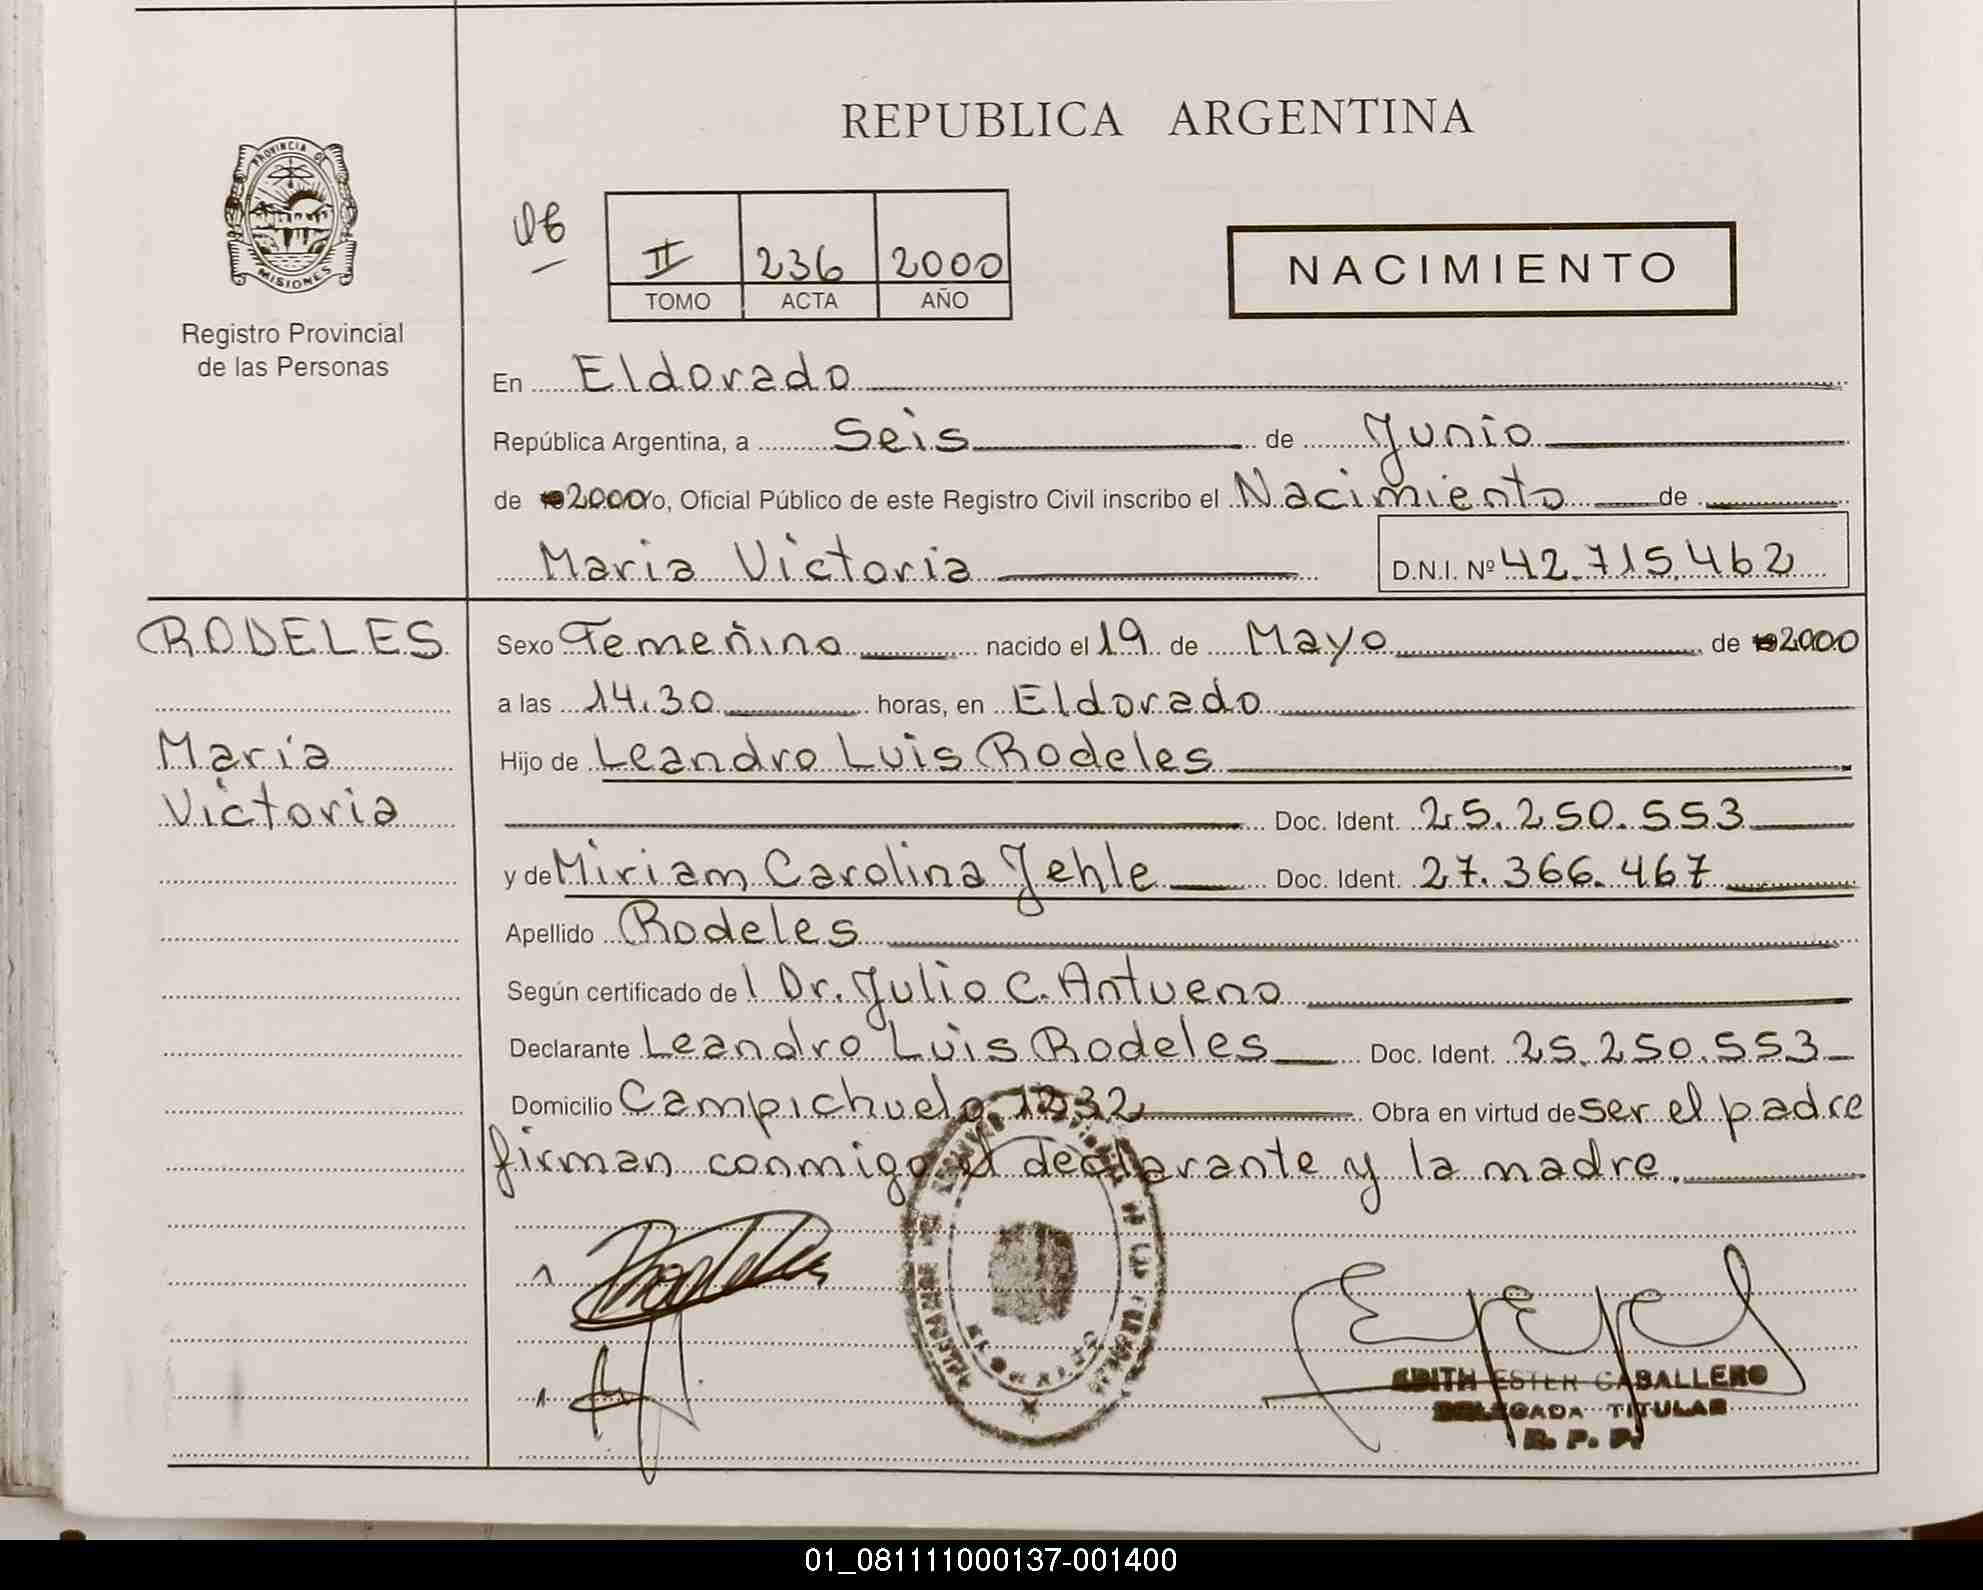 REPUBLICA ARGENTINA
PROVINCIA DE
MISIONES
Registro Provincial
de las Personas
II 236 2000
TOMO ACTA AÑO
NACIMIENTO
En Eldorado
República Argentina, a Seis de Junio
de 2000 Yo, Oficial Público de este Registro Civil inscribo el Nacimiento de
Maria Victoria D.N.I. Nº 42.715.462
RODELES
María
Victoria
Sexo Femenino nacido el 19 de Mayo de 2000
a las 14.30 horas, en Eldorado
Hijo de Leandro Luis Rodeles
Doc. Ident. 25.250.553
y de Miriam Carolina Jehle Doc. Ident. 27.366.467
Apellido Rodeles
Según certificado del Dr. Julio C. Antueno
Declarante Leandro Luis Rodeles Doc. Ident. 25.250.553
Domicilio Campichuelo 1232 Obra en virtud de ser el padre
firman conmigo el declarante y la madre.
EDITH ESTER CABALLERO
DELEGADA TITULAR
R. P. P.
01_081111000137-001400